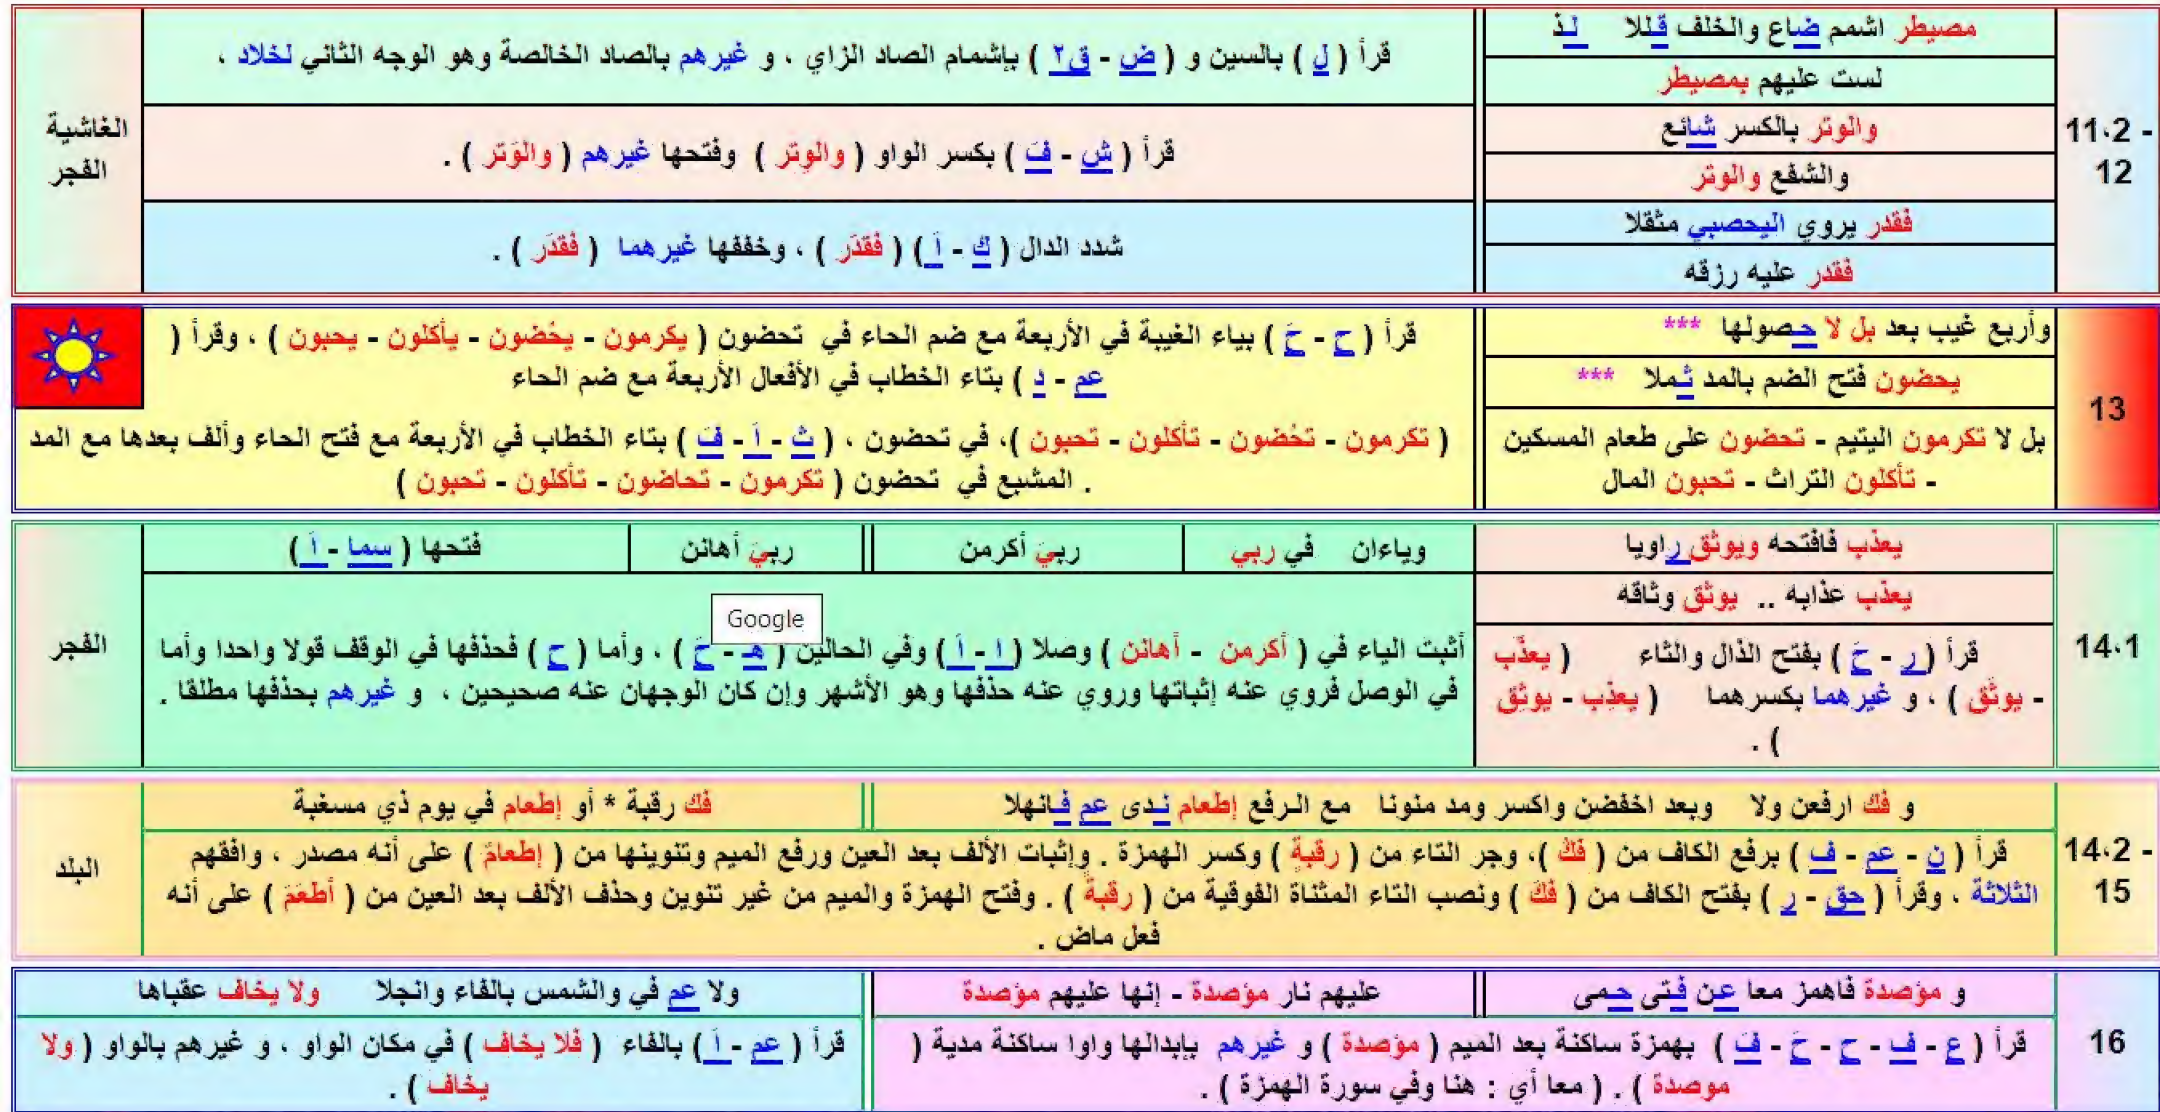 مصيطر اشمم ضاع والخلف قللا لذ
لست عليهم بمصيطر
قرأ ( ل ) بالسين و ( ض - ق٢ ) بإشمام الصاد الزاي ، و غيرهم بالصاد الخالصة وهو الوجه الثاني لخلاد ،
11،2 -
12
والوتر بالكسر شائع
والشفع والوتر
قرأ ( ش - فَ ) بكسر الواو ( والوِتر ) وفتحها غيرهم ( والوَتر ) .
الغاشية
الفجر
فقدر يروي اليحصبي مثقلا
فقدر عليه رزقه
شدد الدال ( ك - أَ ) ( فقدّر ) ، وخففها غيرهما ( فقدَر ) .
13
وأربع غيب بعد بل لا حصولها ***
يحضون فتح الضم بالمد ثملا ***
بل لا تكرمون اليتيم - تحضون على طعام المسكين
- تأكلون التراث - تحبون المال
قرأ ( ح - حَ ) بياء الغيبة في الأربعة مع ضم الحاء في تحضون ( يكرمون - يحُضون - يأكلون - يحبون ) ، وقرأ (
عم - د ) بتاء الخطاب في الأفعال الأربعة مع ضم الحاء
( تكرمون - تحُضون - تأكلون - تحبون )، في تحضون ، ( ث - أَ - فَ ) بتاء الخطاب في الأربعة مع فتح الحاء وألف بعدها مع المد
المشبع في تحضون ( تكرمون - تحاضون - تأكلون - تحبون ) .
14،1
يعذب فافتحه ويوثق راويا
يعذب عذابه .. يوثق وثاقه
قرأ ( ر - حَ ) بفتح الذال والثاء ( يعذَّب
- يوثَق ) ، و غيرهما بكسرهما ( يعذِب - يوثِق
) .
وياءان في ربي
ربيَ أكرمن
ربيَ أهانن
فتحها ( سما - أَ )
Google
أثبت الياء في ( أكرمن - أهانن ) وصلا ( ا - أَ ) وفي الحالين ( هـ - حَ ) ، وأما ( ح ) فحذفها في الوقف قولا واحدا وأما
في الوصل فروي عنه إثباتها وروي عنه حذفها وهو الأشهر وإن كان الوجهان عنه صحيحين ، و غيرهم بحذفها مطلقا .
الفجر
14،2 -
15
و فك ارفعن ولا وبعد اخفضن واكسر ومد منونا مع الرفع إطعام ندى عم فانهلا
فك رقبة * أو إطعام في يوم ذي مسغبة
قرأ ( ن - عم - ف ) برفع الكاف من ( فكُ )، وجر التاء من ( رقبةٍ ) وكسر الهمزة . وإثبات الألف بعد العين ورفع الميم وتنوينها من ( إطعامٌ ) على أنه مصدر ، وافقهم
الثلاثة ، وقرأ ( حق - ر ) بفتح الكاف من ( فكَ ) ونصب التاء المثناة الفوقية من ( رقبةً ) . وفتح الهمزة والميم من غير تنوين وحذف الألف بعد العين من ( أطعَمَ ) على أنه
فعل ماض .
البلد
16
و مؤصدة فاهمز معا عن فتى حمى
عليهم نار مؤصدة - إنها عليهم مؤصدة
قرأ ( ع - ف - ح - حَ - فَ ) بهمزة ساكنة بعد الميم ( مؤصدة ) و غيرهم بإبدالها واوا ساكنة مدية (
موصدة ) . ( معا أي : هنا وفي سورة الهمزة ) .
ولا عم في والشمس بالفاء وانجلا ولا يخاف عقباها
قرأ ( عم - أَ ) بالفاء ( فلا يخاف ) في مكان الواو ، و غيرهم بالواو ( ولا
يخاف ) .